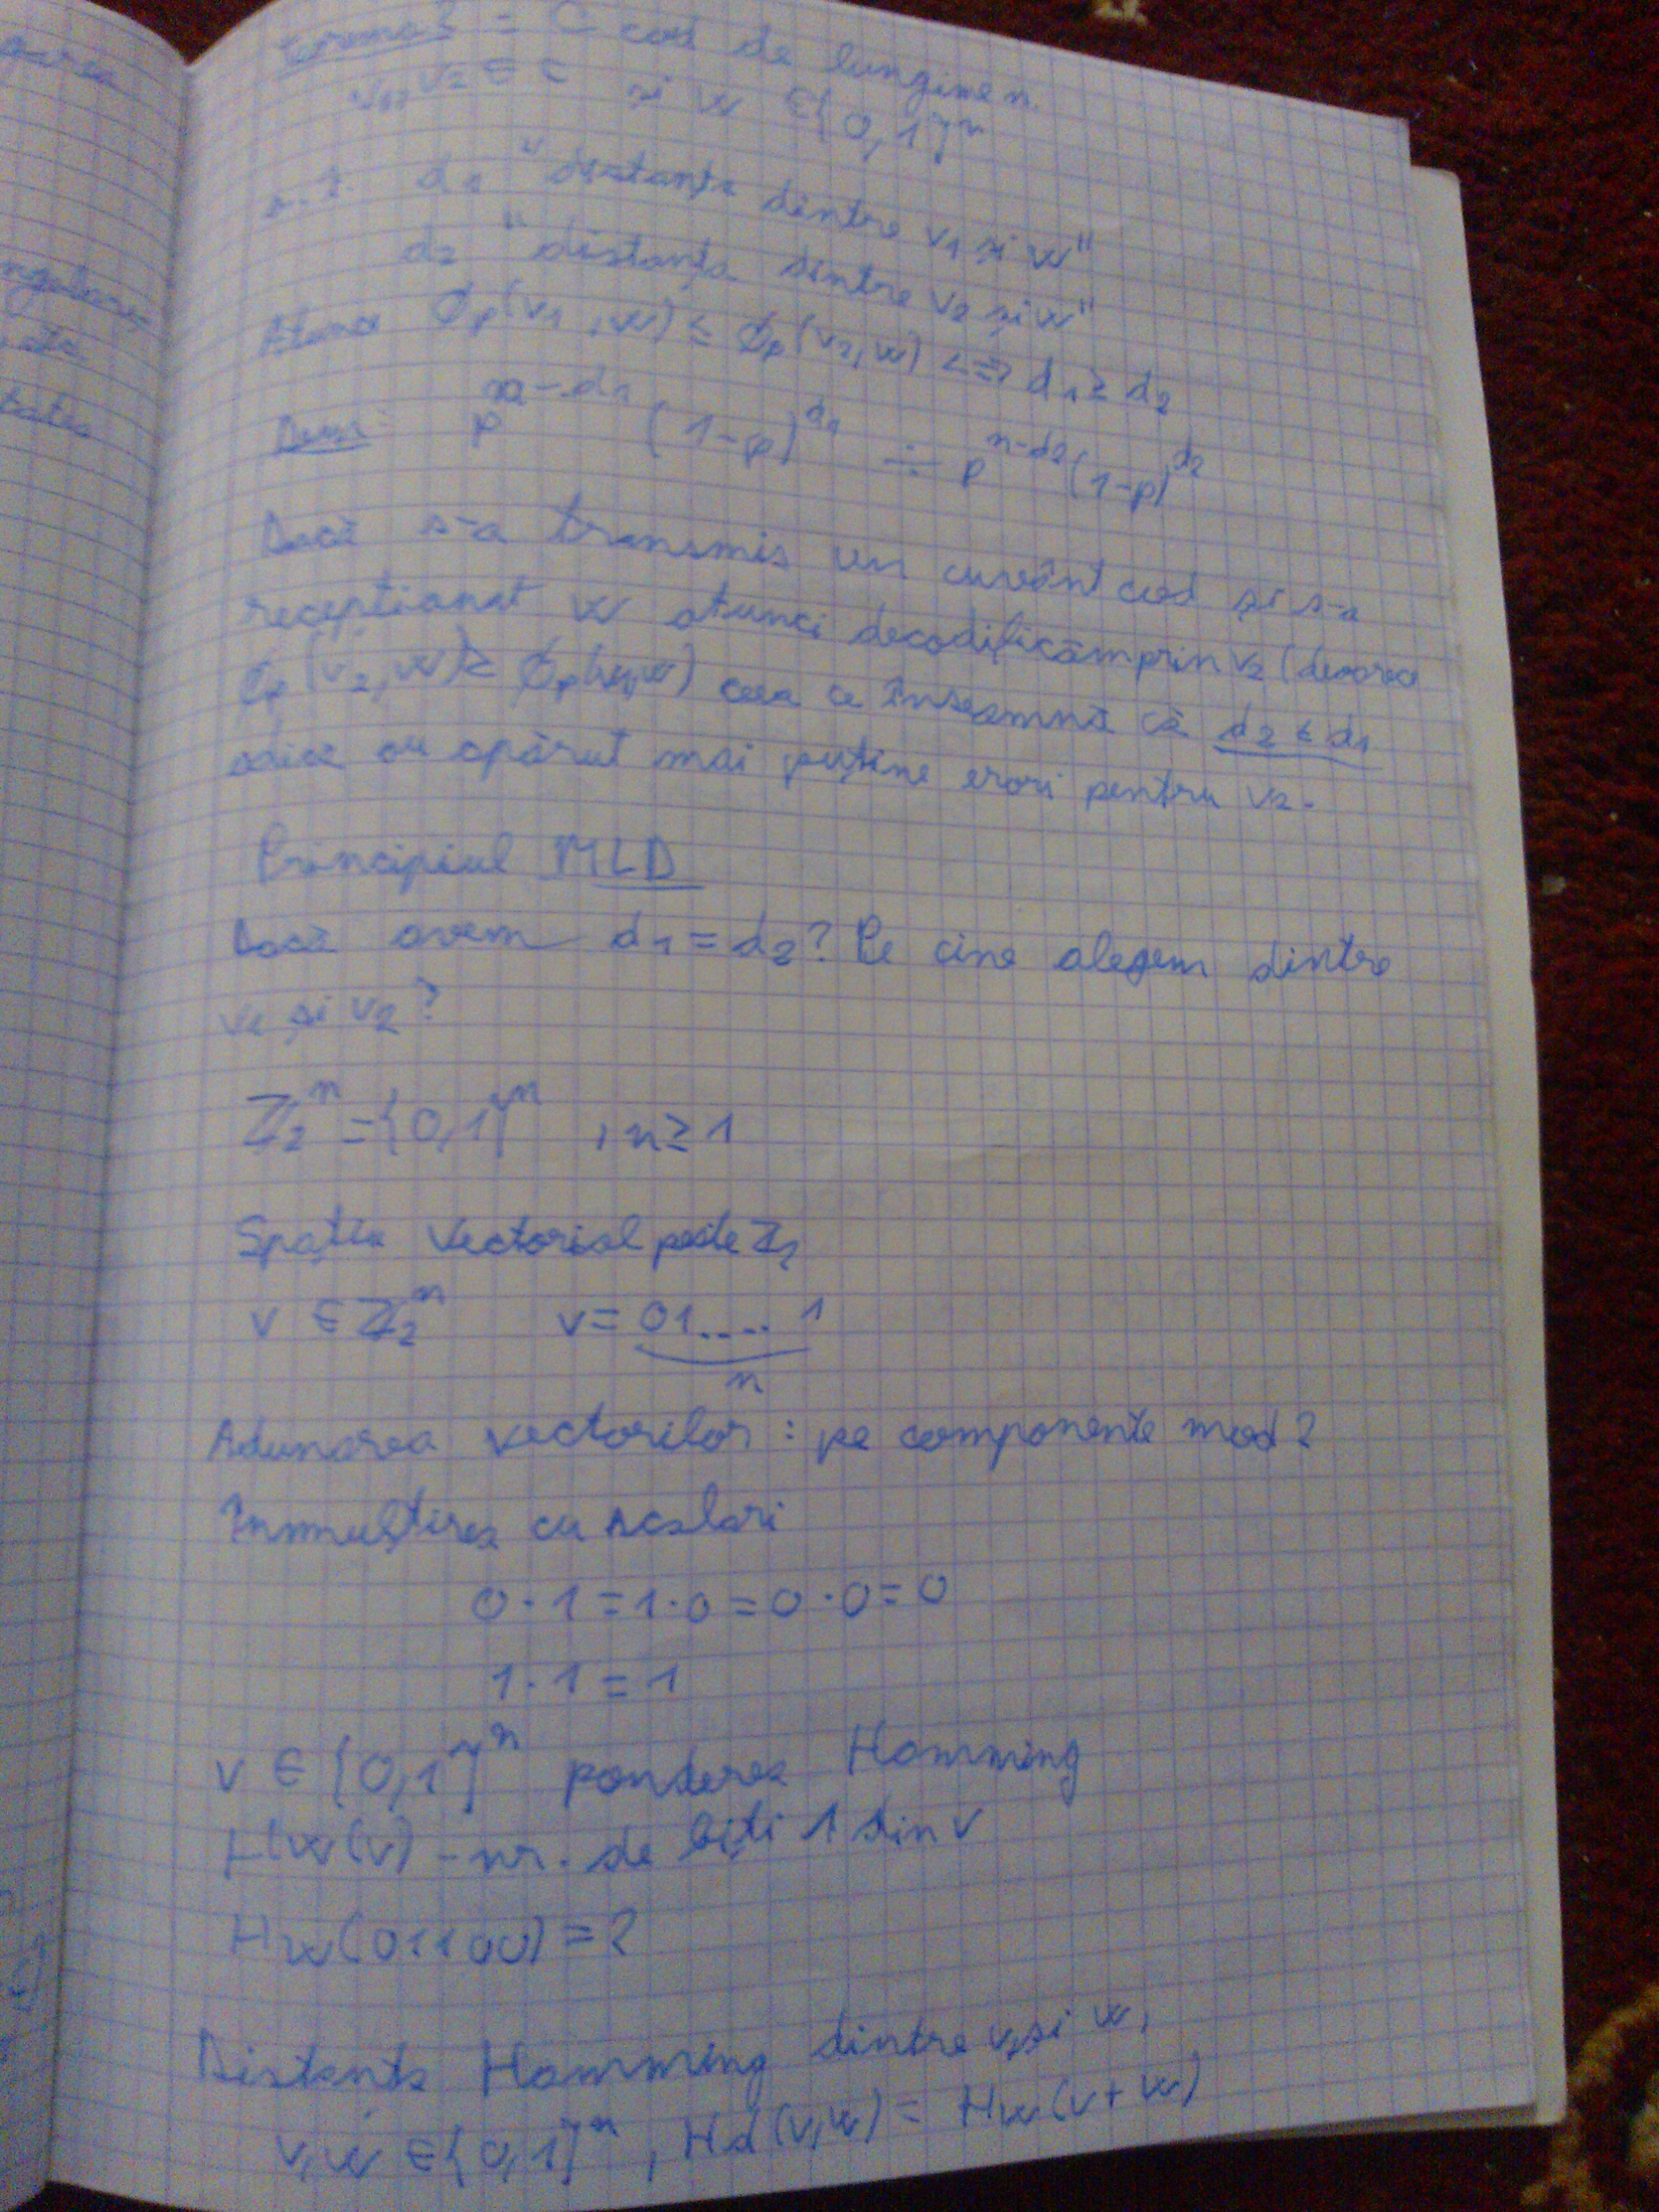 garea
ngulare
ata
tatea
Teorema 2 = C cod de lungime n.
v1, v2 ∈ C și w ∈ {0,1}^n
a.î. d1 "distanța dintre v1 și w"
d2 "distanța dintre v2 și w"
Atunci ϕp(v1,w) ≤ ϕp(v2,w) <=> d1 ≥ d2
Dem: p^(n-d1) (1-p)^d1 ÷ p^(n-d2) (1-p)^d2
Dacă s-a transmis un cuvânt cod și s-a
recepționat w atunci decodificăm prin v2 (deoarece
ϕp(v2,w) ≥ ϕp(v1,w) ceea ce înseamnă că d2 ≤ d1
adică au apărut mai puține erori pentru v2.
Principiul MLD
Dacă avem d1 = d2? Pe cine alegem dintre
v1 și v2?
Z2^n = {0,1}^n , n ≥ 1
Spațiu vectorial peste Z2
v ∈ Z2^n v = 01.... 1
n
Adunarea vectorilor : pe componente mod 2
Înmulțirea cu scalari
0·1 = 1·0 = 0·0 = 0
1·1 = 1
v ∈ {0,1}^n ponderea Hamming
Hw(v) - nr. de biți 1 din v
Hw(01100) = 2
Distanța Hamming dintre v și w,
v,w ∈ {0,1}^n , Hd(v,w) = Hw(v+w)